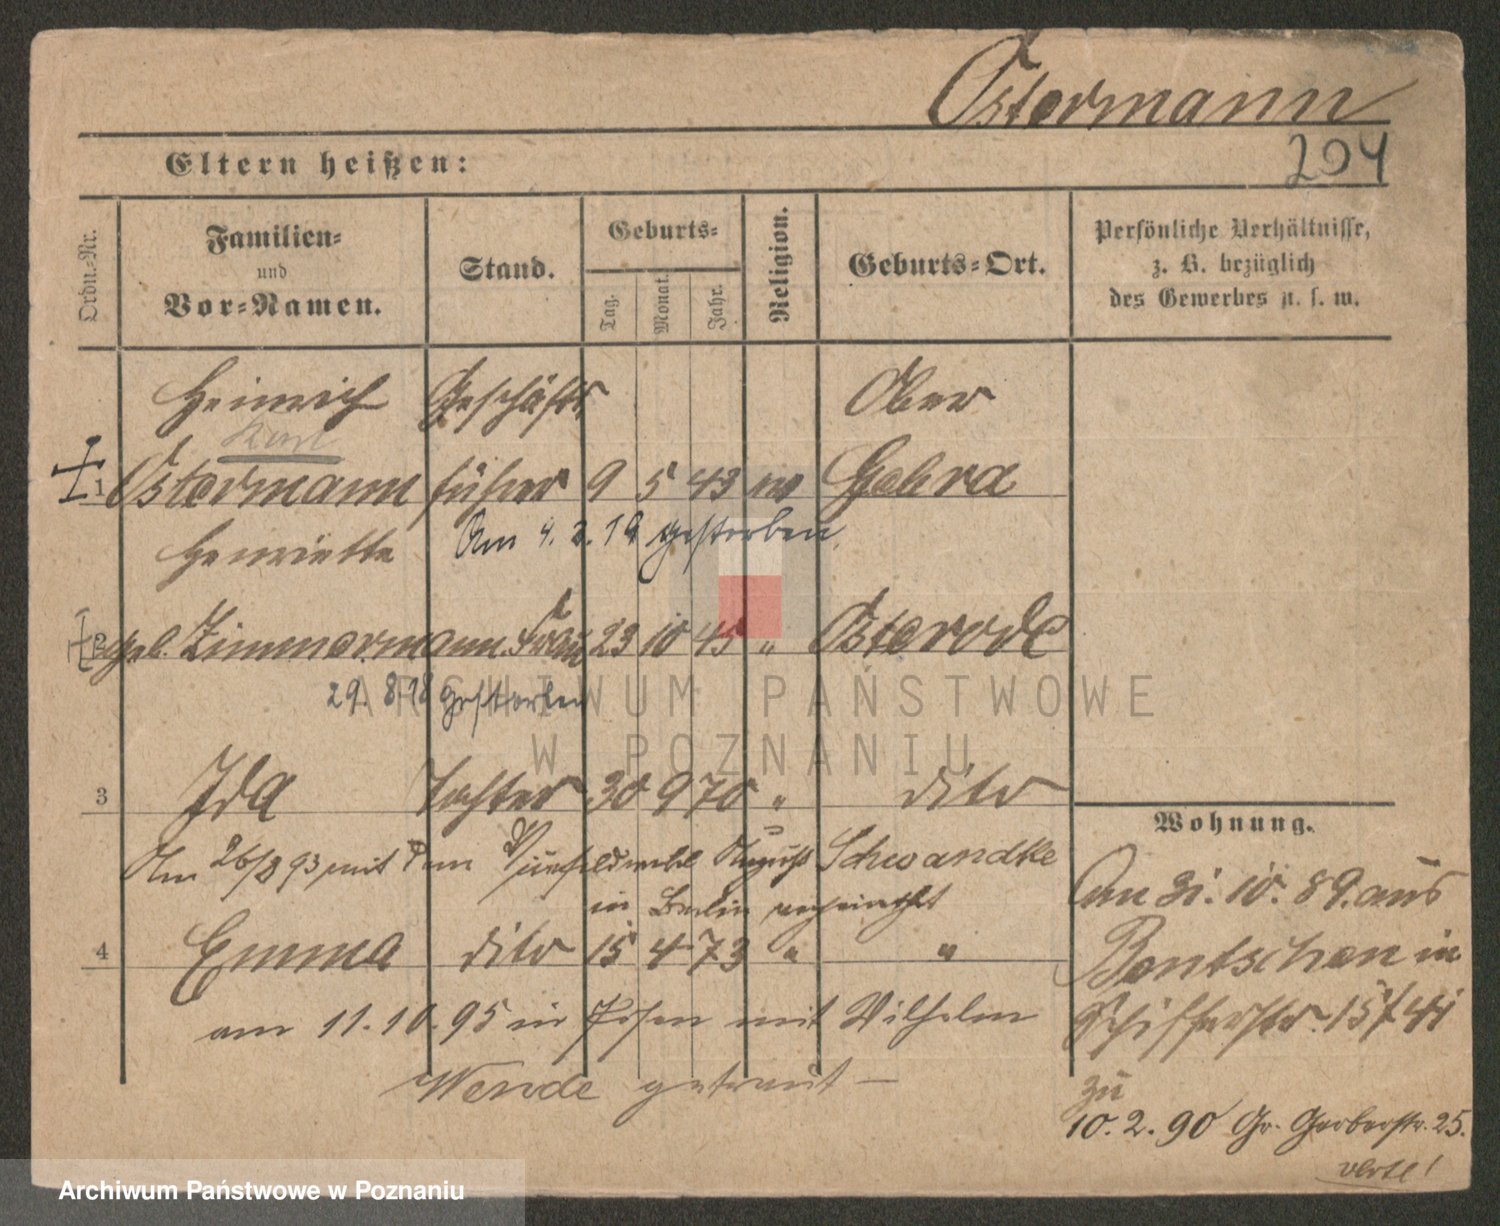 Ostermann
Eltern heißen:
204
Ordn.-Nr.
Familien-
und
Vor-Namen.
Stand.
Geburts-
Tag.
Monat.
Jahr.
Religion.
Geburts-Ort.
Persönliche Verhältnisse,
z. B. bezüglich
des Gewerbes u. s. w.
Heinrich Geschäfts Ober
Karl
1 Ostermann führer 9 5 43 Gebra
Am 4. 2. 19 gestorben.
Henriette
2 geb. Zimmermann Frau 23 10 45 " Osterode
29. 8. 18 gestorben
ARCHIWUM PAŃSTWOWE
W POZNANIU
3 Ida Tochter 30 9 70 " dito
Am 26/8 93 mit dem August Schwandke
in Berlin verheirathet
4 Emma dito 15 4 73 " "
am 11. 10. 95 in Posen mit Wilhelm
Wende getraut —
Wohnung.
Am 31. 10. 89. aus
Bentschen in
Schifferstr. 15
zu
10. 2. 90 Gr. Gerberstr. 25.
verte!
Archiwum Państwowe w Poznaniu